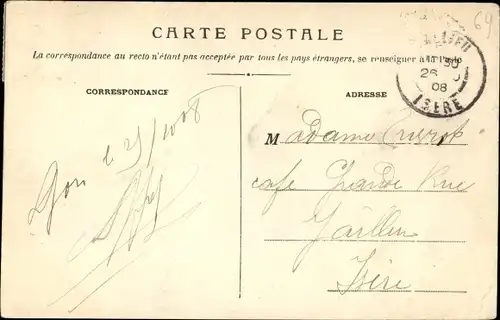 64
CARTE POSTALE
La correspondance au recto n'étant pas acceptée par tous les pays étrangers, se renseigner à la Poste
26
08
ISÈRE
CORRESPONDANCE
ADRESSE
Lyon le 25/1908
Madame
café Grande Rue
Jallieu
Isère